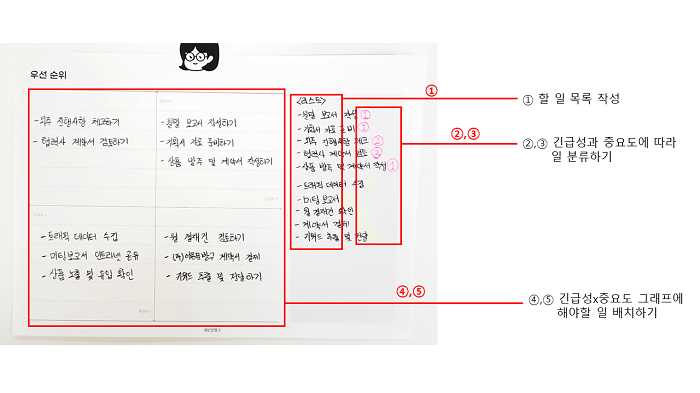 우선 순위
- 외주 진행사항 체크하기
- 협력사 계약서 검토하기
- 월말 보고서 작성하기
- 기획서 자료 준비하기
- 상품 발주 및 계약서 작성하기
- 트래픽 데이터 수집
- 미팅보고서 인트라넷 공유
- 상품 노출 및 유입 확인
- 월 결재건 검토하기
계약서 결제
- 키워드 추출 및 전달하기
<리스트>
- 월말 보고서 작성 ①
- 기획서 자료 준비 ①
- 외주 진행사항 체크 ②
- 협력사 계약서 검토 ②
- 상품 발주 및 계약서 작성 ①
- 트래픽 데이터 수집
- 미팅 보고서
- 월 결재건 확인
- 계약서 결제
- 키워드 추출 및 전달
①
① 할 일 목록 작성
②,③
②,③ 긴급성과 중요도에 따라
일 분류하기
④,⑤
④,⑤ 긴급성x중요도 그래프에
해야할 일 배치하기